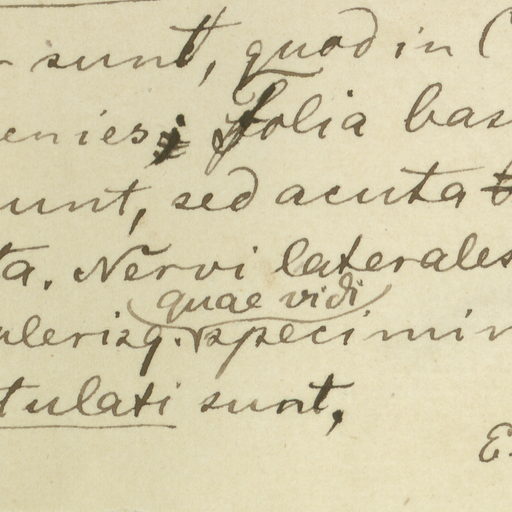 sunt, quod in C
enies; folia bas
unt, sed acuta
ta. Nervi laterales
quae vidi
ulerisq. specimin
tulati sunt,
E.